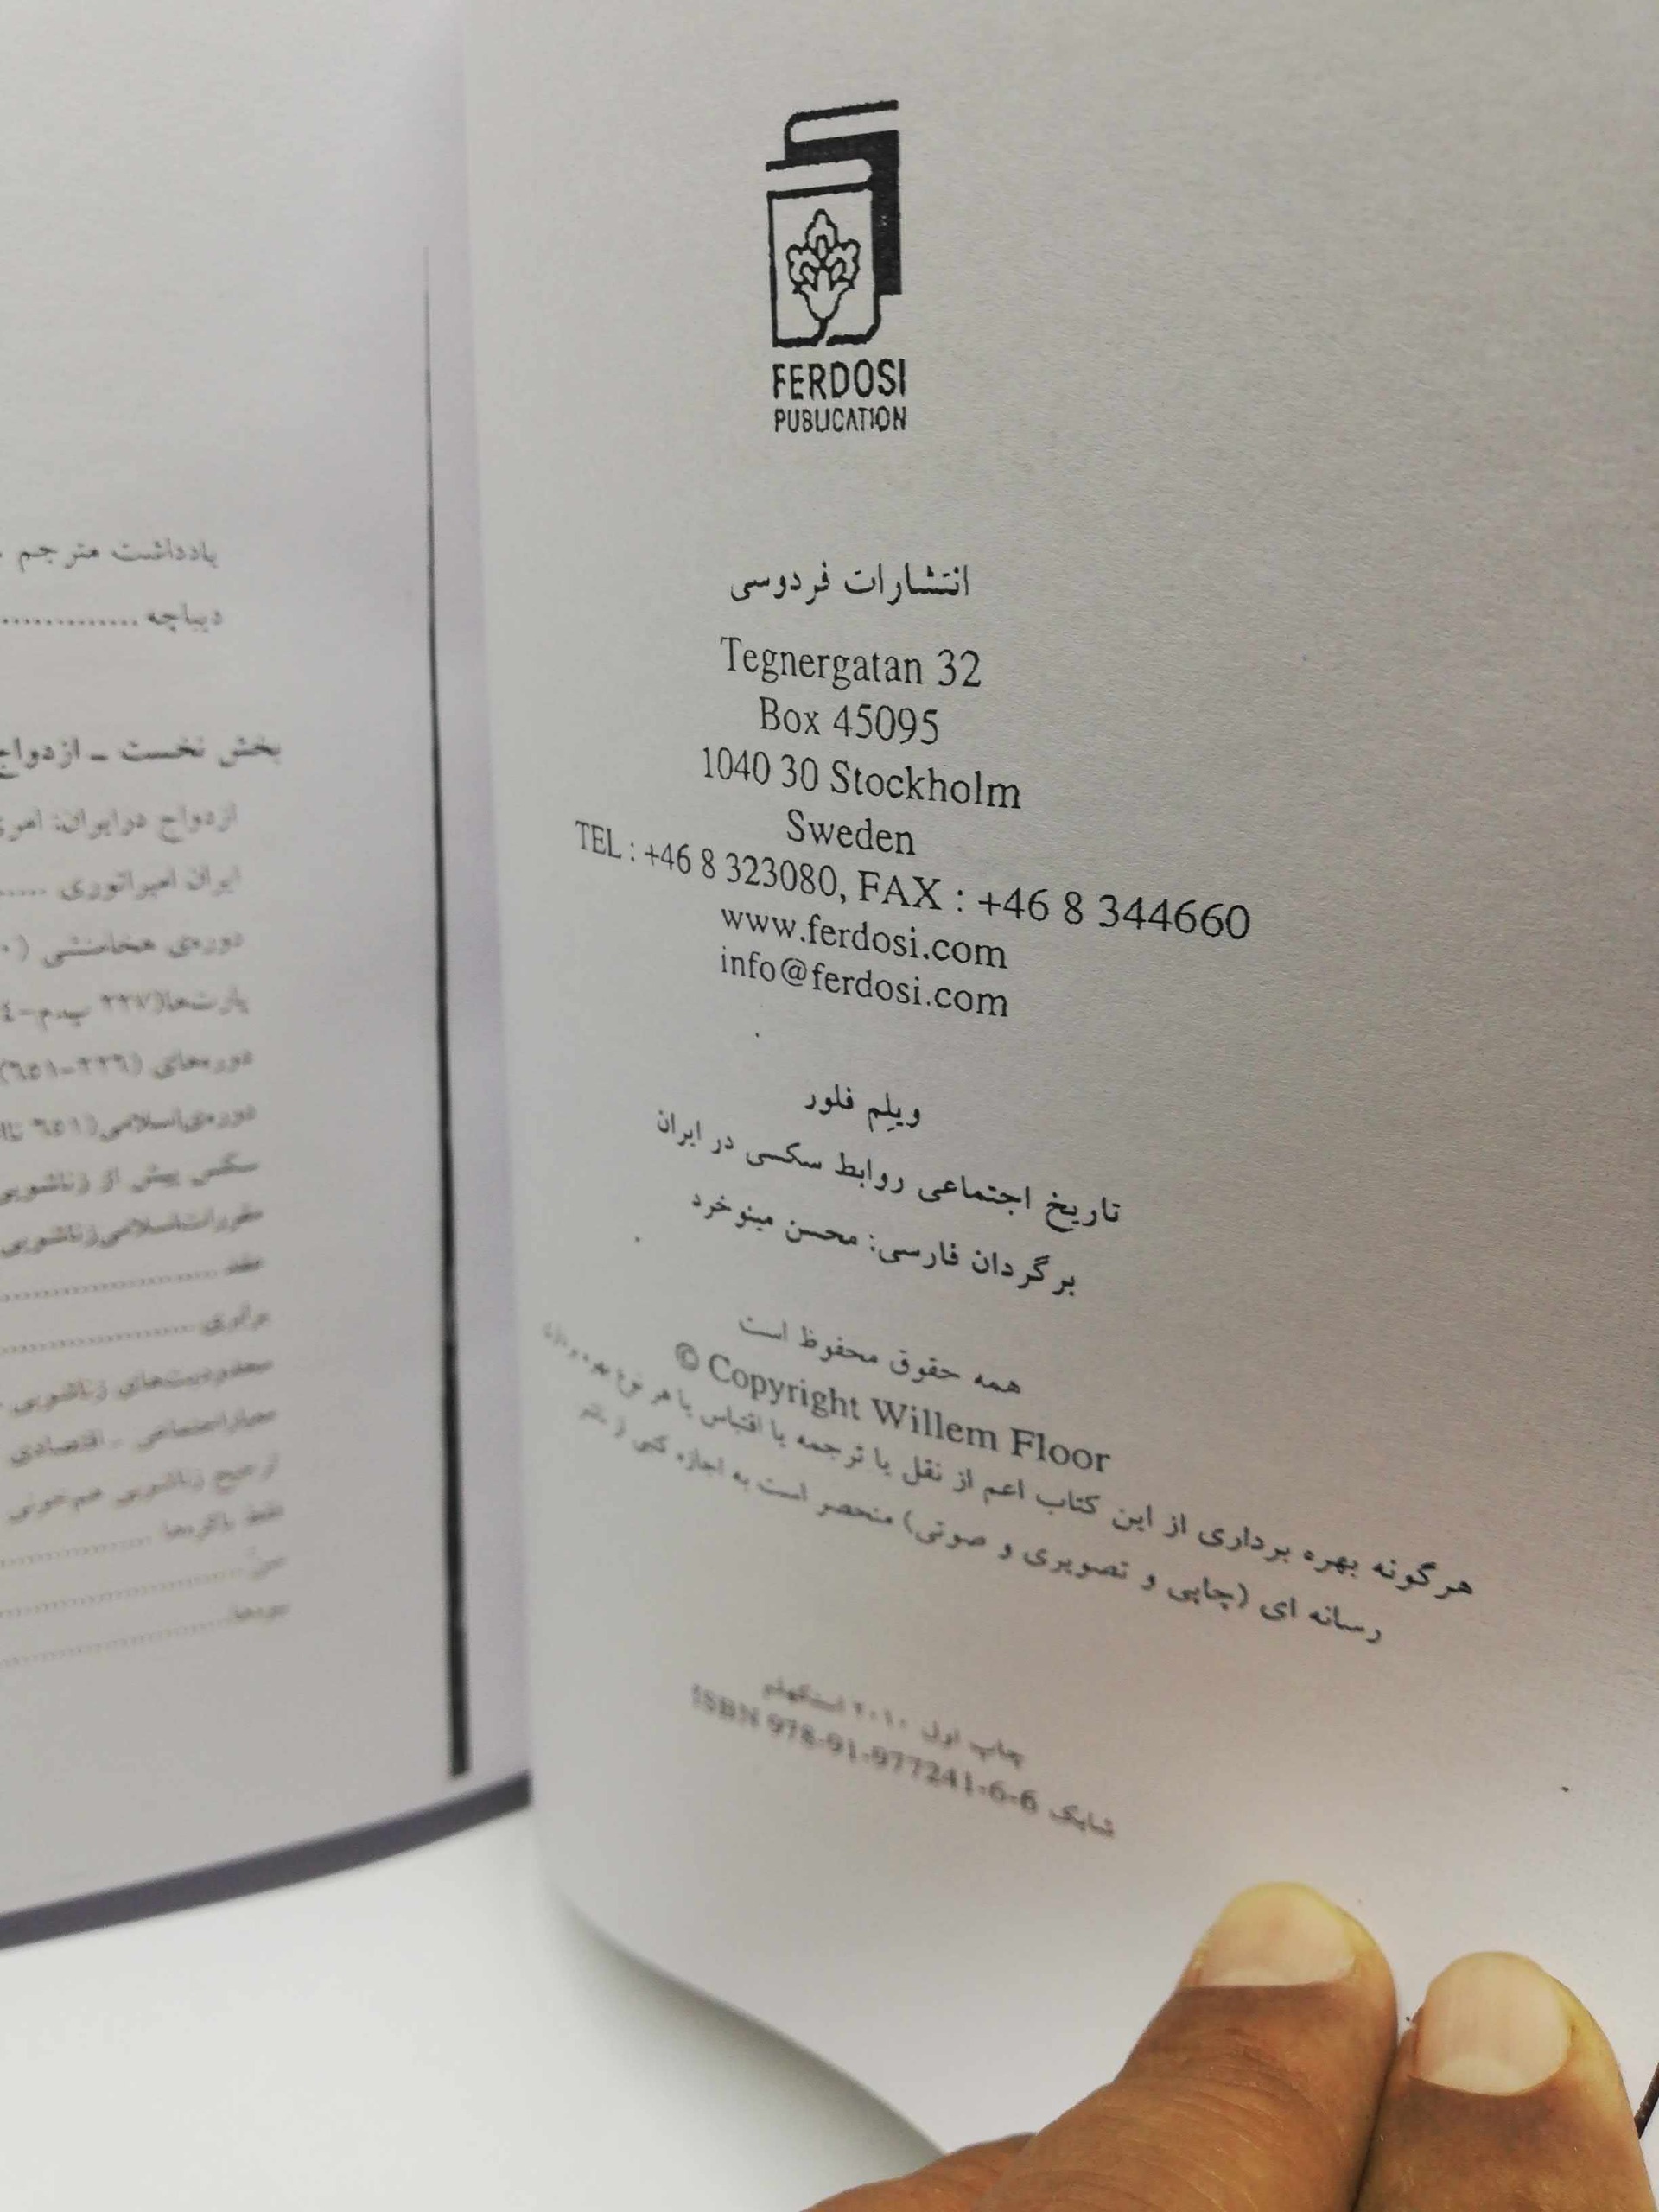 FERDOSI
PUBLICATION
انتشارات فردوسی
Tegnergatan 32
Box 45095
1040 30 Stockholm
Sweden
TEL : +46 8 323080, FAX : +46 8 344660
www.ferdosi.com
info@ferdosi.com
ویلِم فلور
تاریخ اجتماعی روابط سکسی در ایران
برگردان فارسی: محسن مینوخرد
همه حقوق محفوظ است
© Copyright Willem Floor
هرگونه بهره برداری از این کتاب اعم از نقل یا ترجمه یا اقتباس یا هر نوع بهره برداری
رسانه ای (چاپی و تصویری و صوتی) منحصر است به اجازه کتبی از ناشر
چاپ اول ۲۰۱۰ استکهلم
شابک ISBN 978-91-977241-6-6
یادداشت مترجم
دیباچه ..............
بخش نخست ـ ازدواج
ازدواج در ایران: امری
ایران امپراتوری .....
دوره‌ی هخامنشی (
پارت‌ها(۲۴۷ پ.م-
دوره‌های (۲۲٦-٦٥۱)
دوره‌ی‌اسلامی(٦٥۱ تا
سکس پیش از زناشویی
مقررات‌اسلامی‌زناشویی
عقد ..............
برابری ..............
محدودیت‌های زناشویی
معیاراجتماعی ـ اقتصادی
ترجیح زناشویی هم‌خونی
فقط باکره‌ها ..............
سنّ ..............